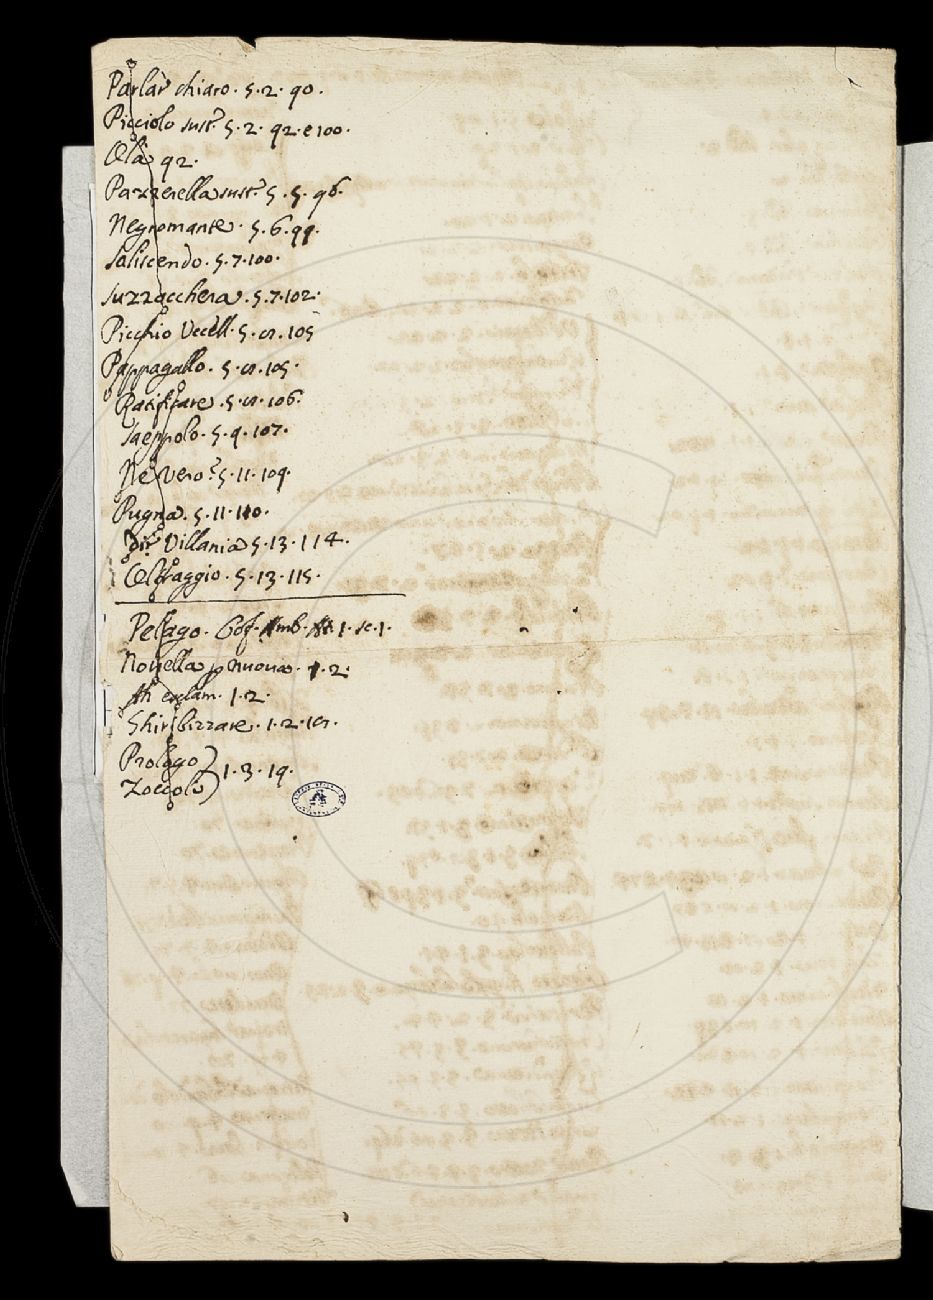 Parlar chiaro. 5. 2. 90.
Picciolo sust. 5. 2. 92. e 100.
Olà 92.
Pazzerella sust. 5. 5. 96.
Negromante. 5. 6. 99.
Saliscendo. 5. 7. 100.
Suzzacchera. 5. 7. 102.
Picchio Uccell. 5. 8. 105
Pappagallo. 5. 8. 105.
Ratificare. 5. 8. 106.
Saeppolo. 5. 9. 107.
Ne vero? 5. 11. 109.
Pugna. 5. 11. 110.
Dir Villania 5. 13. 114.
5. 13. 115.
Pelago. Cof. At. 1. sc. 1.
Novella p nuova. 1. 2.
Ah esclam. 1. 2.
Ghiribizzare. 1. 2. 18.
Prologo
Zoccolo } 1. 3. 19.